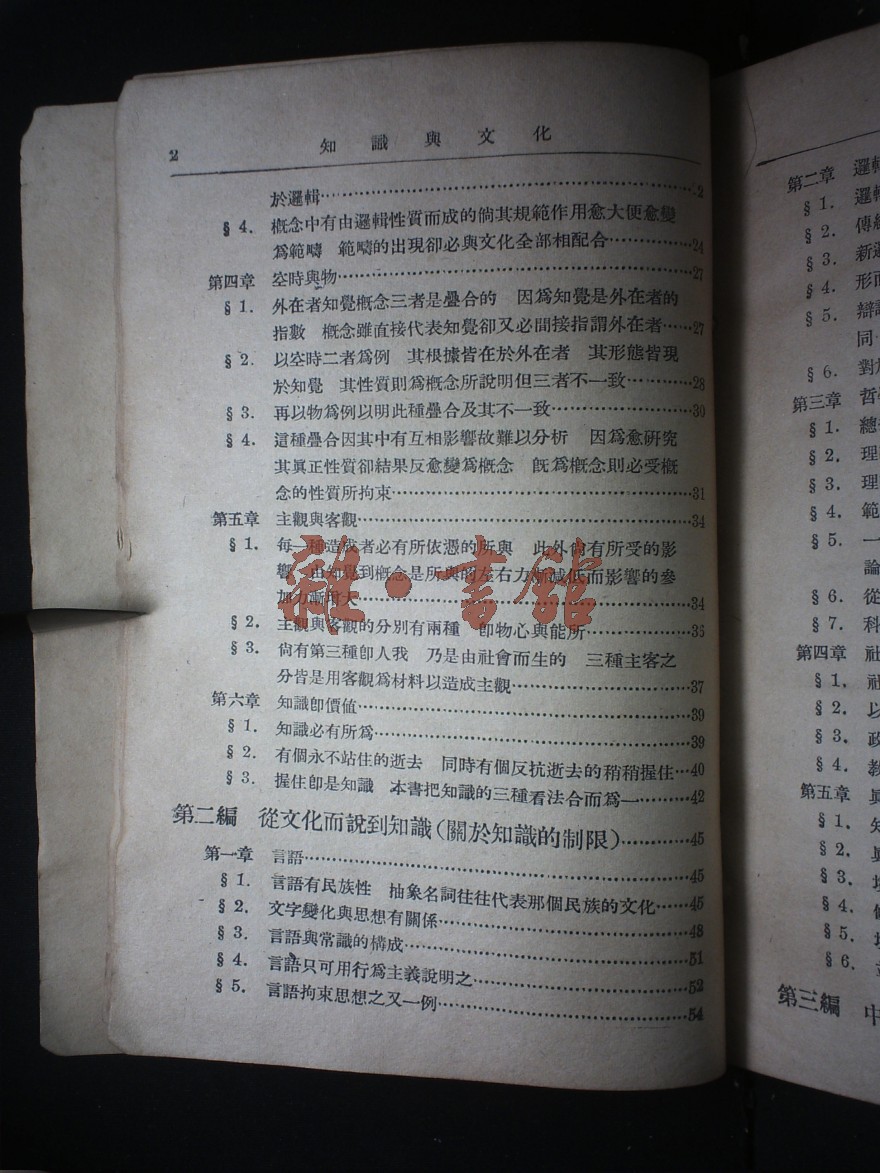 2 知識與文化
於邏輯……2
§ 4. 概念中有由邏輯性質而成的倘其規範作用愈大便愈變
為範疇 範疇的出現卻必與文化全部相配合……24
第四章 空時與物……27
§ 1. 外在者知覺概念三者是疊合的 因為知覺是外在者的
指數 概念雖直接代表知覺卻又必間接指謂外在者……27
§ 2. 以空時二者為例 其根據皆在於外在者 其形態皆現
於知覺 其性質則為概念所說明但三者不一致……28
§ 3. 再以物為例以明此種疊合及其不一致……30
§ 4. 這種疊合因其中有互相影響故難以分析 因為愈研究
其眞正性質卻結果反愈變為概念 旣為概念則必受概
念的性質所拘束……31
第五章 主觀與客觀……34
§ 1. 每一種造成者必有所依憑的所與 此外尙有所受的影
響 由知覺到概念是所與的左右力漸減低而影響的參
加力漸增大……34
§ 2. 主觀與客觀的分別有兩種 卽物心與能所……36
§ 3. 尙有第三種卽人我 乃是由社會而生的 三種主客之
分皆是用客觀為材料以造成主觀……37
第六章 知識卽價値……39
§ 1. 知識必有所為……39
§ 2. 有個永不站住的逝去 同時有個反抗逝去的稍稍握住…40
§ 3. 握住卽是知識 本書把知識的三種看法合而為一……42
第二編 從文化而說到知識(關於知識的制限)……45
第一章 言語……45
§ 1. 言語有民族性 抽象名詞往往代表那個民族的文化……45
§ 2. 文字變化與思想有關係……48
§ 3. 言語與常識的構成……51
§ 4. 言語只可用行為主義說明之……52
§ 5. 言語拘束思想之又一例……54
雜·書館
第二章 邏輯
§ 1. 邏輯
§ 2. 傳統
§ 3. 新邏
§ 4. 形而
§ 5. 辯證
同
§ 6. 對於
第三章 哲學
§ 1. 總
§ 2. 理
§ 3. 理
§ 4. 範
§ 5. 一
論
§ 6. 從
§ 7. 科
第四章 社
§ 1. 社
§ 2. 以
§ 3. 政
§ 4. 教
第五章 眞
§ 1. 知
§ 2. 眞
§ 3.
§ 4.
§ 5.
§ 6.
第三編 中